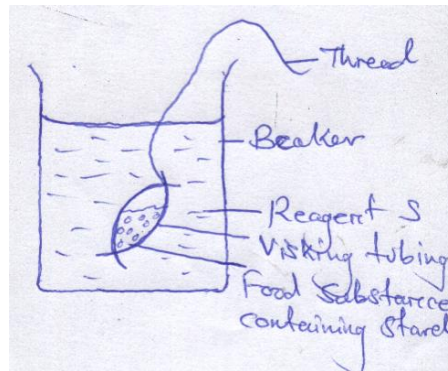 Thread
Beaker
Reagent S
Visking tubing
Food Substance
containing starch